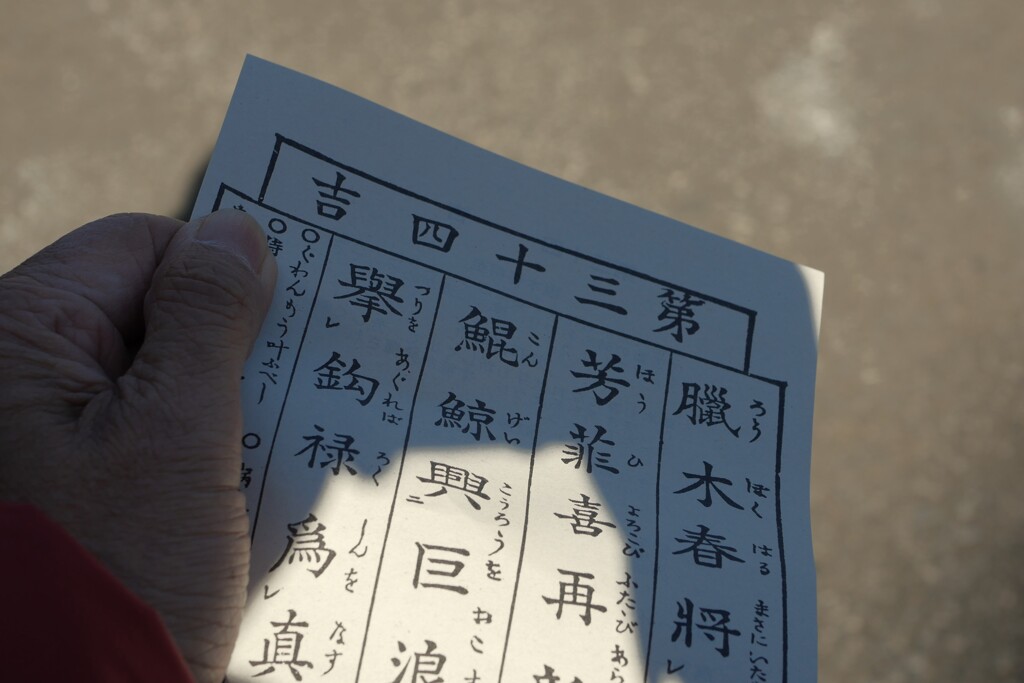 第三十四吉
臘木春將
ろう ぼく はる まさにいた
芳菲喜再
ほう ひ よろこび ふたゝび あら
鯤鯨興巨浪
こん げい こうろうを おこす
擧鈎禄爲真
つりを あぐれば ろく しんを なす
〇ぐわんもう叶ふべし